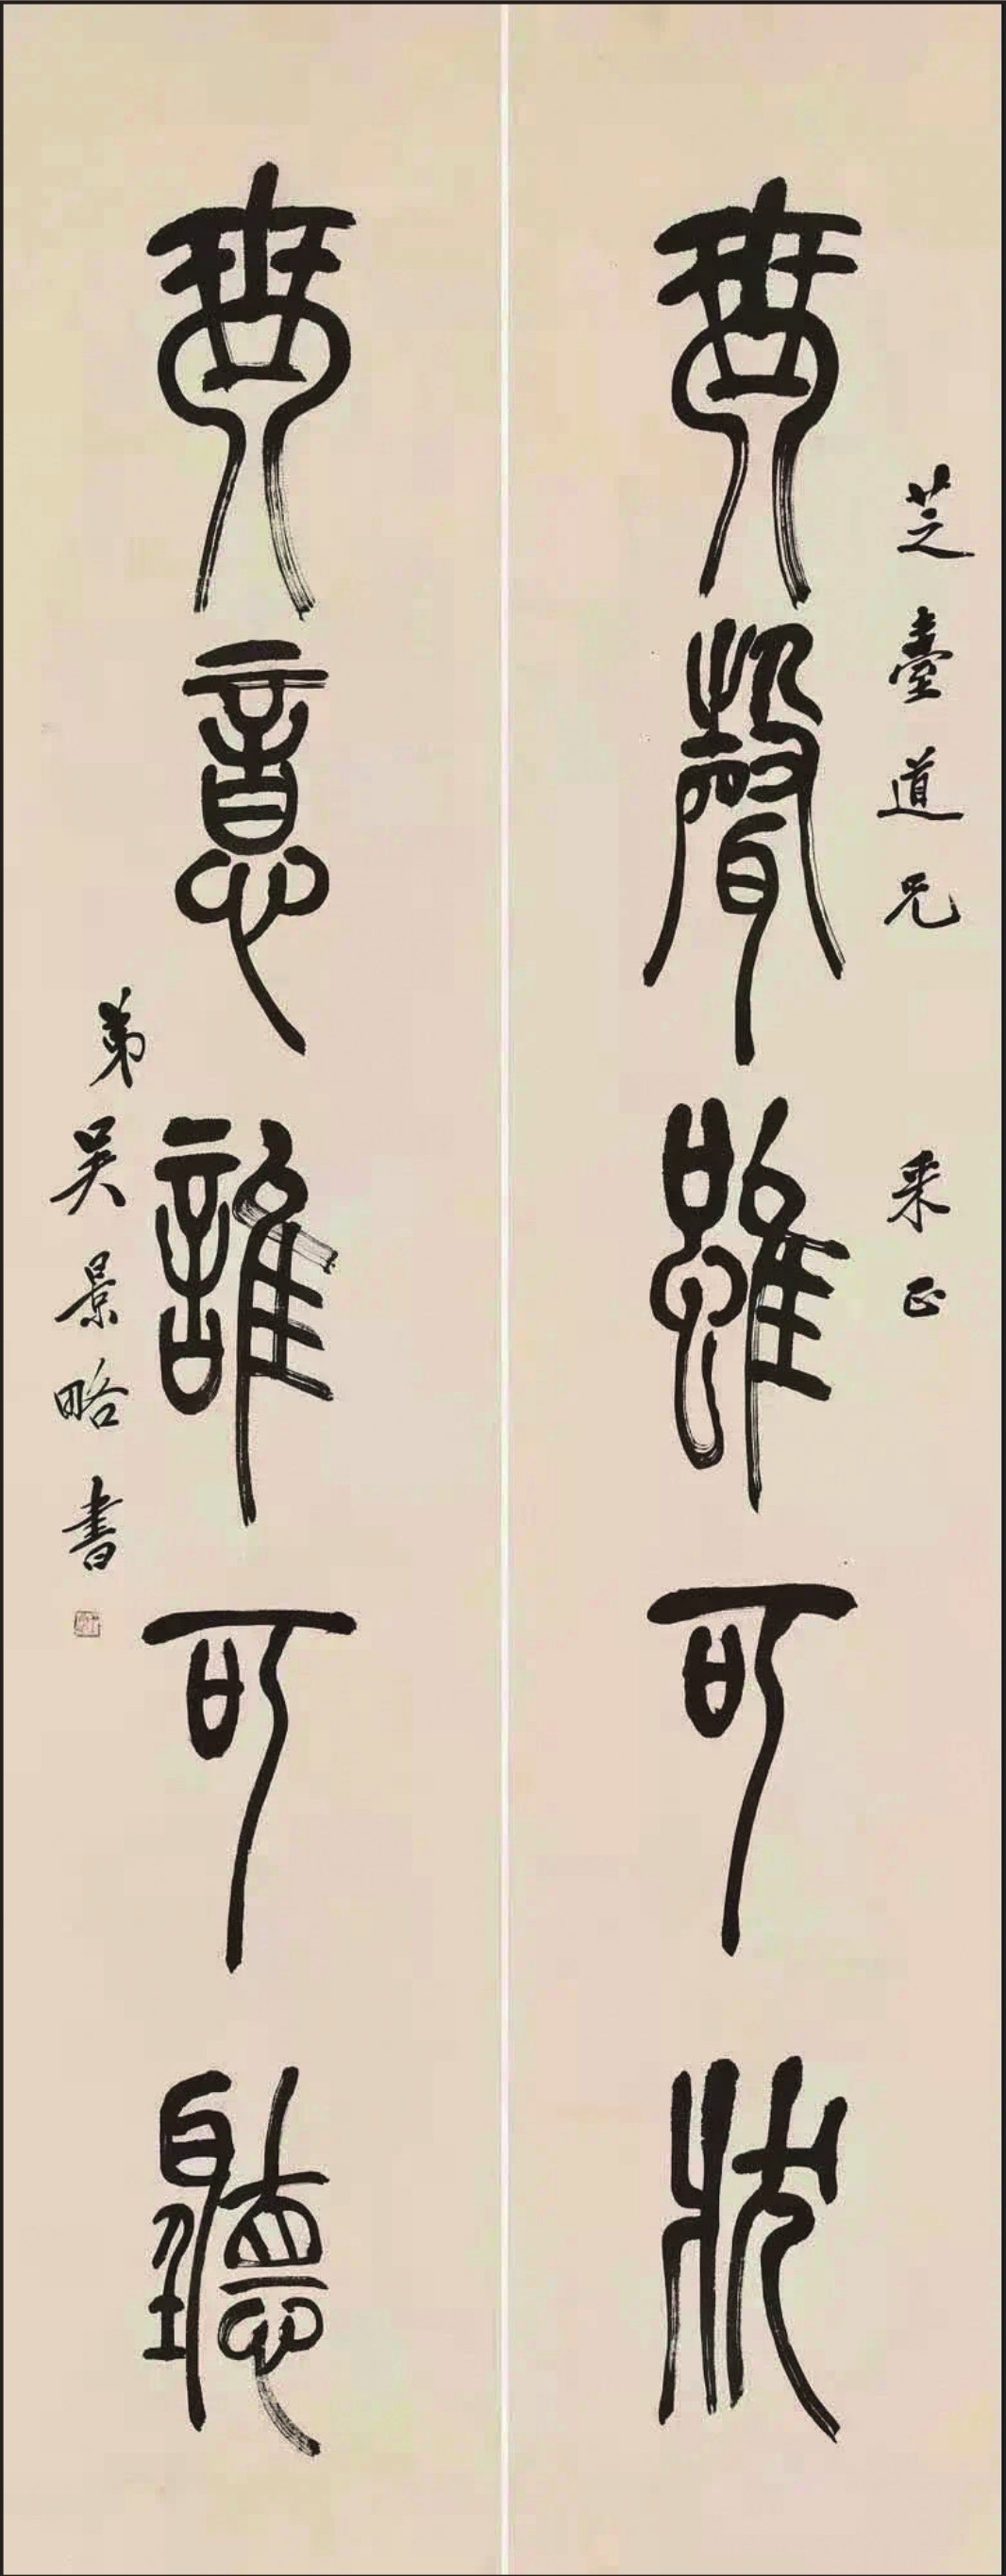 芝臺道兄 采正
無聲雖可狀
無意誰可聽
弟吴景略書